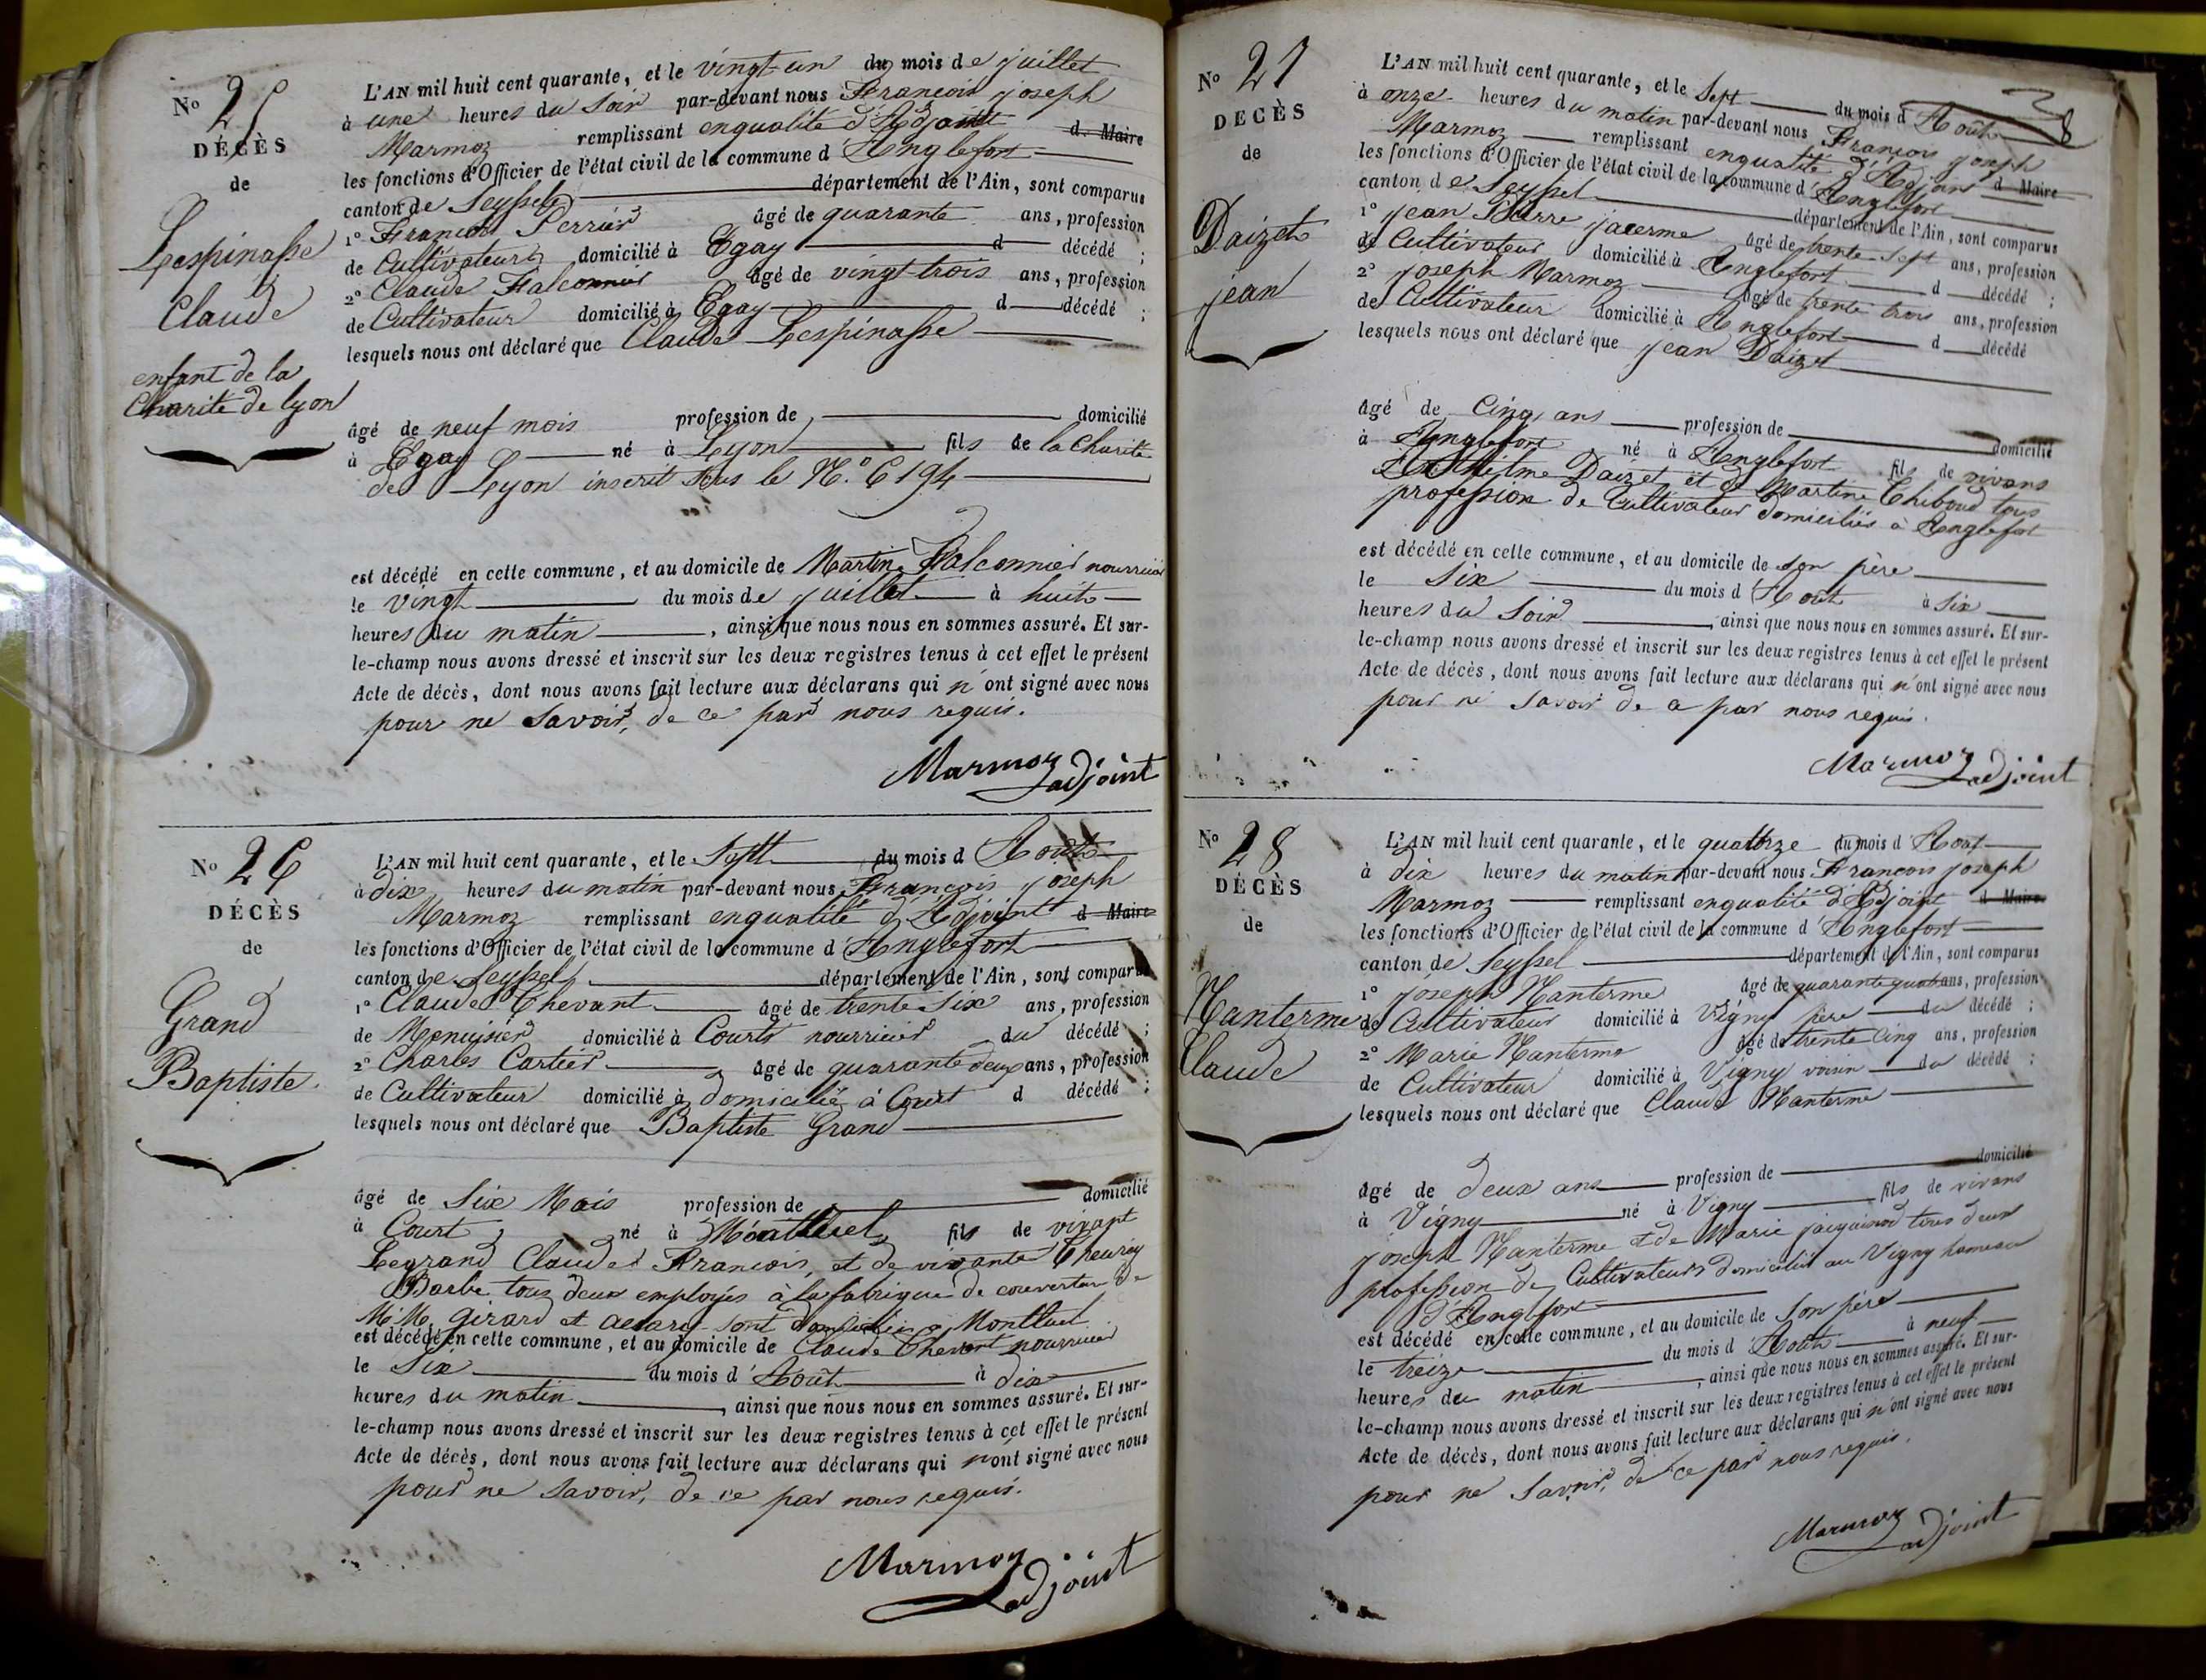 N° 25
DÉCÈS
de
Lespinasse
Claude
enfant de la
Charité de lyon
L'AN mil huit cent quarante, et le vingt-un du mois de juillet
à une heures du Soir par-devant nous François joseph
Marmoz remplissant enqualité d'Adjoint d. Maire
les fonctions d'Officier de l'état civil de la commune d'Anglefort
canton de Seyssel département de l'Ain, sont comparus
1° François Perrier âgé de quarante ans, profession
de Cultivateur domicilié à Egay d décédé ;
2° Claude Falconnier âgé de vingt trois ans, profession
de Cultivateur domicilié à Egay d décédé ;
lesquels nous ont déclaré que Claude Lespinasse
âgé de neuf mois profession de domicilié
à Egay né à Lyon fils de la Charité
de Lyon inscrit sous le N.° 6194
est décédé en cette commune, et au domicile de Martin Falconnier nourricier
le vingt du mois de juillet à huit
heures du matin, ainsi que nous nous en sommes assuré. Et sur-
le-champ nous avons dressé et inscrit sur les deux registres tenus à cet effet le présent
Acte de décès, dont nous avons fait lecture aux déclarans qui n'ont signé avec nous
pour ne Savoir, de ce par nous requis.
Marmoz adjoint
N° 26
DÉCÈS
de
Grand
Baptiste.
L'AN mil huit cent quarante, et le Sept du mois d'Août
à dix heures du matin par-devant nous François joseph
Marmoz remplissant enqualité d'Adjoint d Maire
les fonctions d'Officier de l'état civil de la commune d'Anglefort
canton de Seyssel département de l'Ain, sont comparus
1° Claude Chevant âgé de trente Six ans, profession
de Menuisier domicilié à Court nourricier du décédé ;
2° Charles Cartier âgé de quarante deux ans, profession
de Cultivateur domicilié à domicilié à Court d décédé ;
lesquels nous ont déclaré que Baptiste Grand
âgé de Six Mois profession de domicilié
à Court né à Montluel fils de vivant
Legrand Claude François, et de vivante
Barbe tous deux employés à la fabrique de couverture de
MM. girard et sont domiciliés à Montluel
est décédé en cette commune, et au domicile de Claude Chevant nourricier
le Six du mois d'Août à dix
heures du matin, ainsi que nous nous en sommes assuré. Et sur-
le-champ nous avons dressé et inscrit sur les deux registres tenus à cet effet le présent
Acte de décès, dont nous avons fait lecture aux déclarans qui n'ont signé avec nous
pour ne Savoir, de ce par nous requis.
Marmoz adjoint
N° 27
DÉCÈS
de
Daizet
jean
L'AN mil huit cent quarante, et le Sept du mois d'Août
à onze heures du matin par-devant nous François joseph
Marmoz remplissant enqualité d'Adjoint d Maire
les fonctions d'Officier de l'état civil de la commune d'Anglefort
canton de Seyssel département de l'Ain, sont comparus
1° jean Pierre jacerme âgé de trente Sept ans, profession
de Cultivateur domicilié à Anglefort d décédé ;
2° joseph Marmoz âgé de trente trois ans, profession
de Cultivateur domicilié à Anglefort d décédé
lesquels nous ont déclaré que jean Daizet
âgé de Cinq ans profession de domicilié
à Anglefort né à Anglefort fils de vivans
Anthelme Daizet et de Martine Thiboud tous
profession de Cultivateur domiciliés à Anglefort
est décédé en cette commune, et au domicile de Son père
le Six du mois d'Août à Six
heures du Soir, ainsi que nous nous en sommes assuré. Et sur-
le-champ nous avons dressé et inscrit sur les deux registres tenus à cet effet le présent
Acte de décès, dont nous avons fait lecture aux déclarans qui n'ont signé avec nous
pour ne Savoir de ce par nous requis.
Marmoz adjoint
N° 28
DÉCÈS
de
Nanterme
Claude
L'AN mil huit cent quarante, et le quatorze du mois d'Août
à dix heures du matin par-devant nous François joseph
Marmoz remplissant enqualité d'Adjoint d Maire
les fonctions d'Officier de l'état civil de la commune d'Anglefort
canton de Seyssel département de l'Ain, sont comparus
1° joseph Nanterme âgé de quarante quatre ans, profession
de Cultivateur domicilié à Vigny père du décédé ;
2° Marie Nanterme âgé de trente Cinq ans, profession
de Cultivateur domicilié à Vigny voisin du décédé ;
lesquels nous ont déclaré que Claude Nanterme
âgé de deux ans profession de domicilié
à Vigny né à Vigny fils de vivans
joseph Nanterme et de Marie jacquinod tous deux
profession de Cultivateurs domiciliés au Vigny hameau
d'Anglefort
est décédé en cette commune, et au domicile de Son père
le treize du mois d'Août à neuf
heures du matin, ainsi que nous nous en sommes assuré. Et sur-
le-champ nous avons dressé et inscrit sur les deux registres tenus à cet effet le présent
Acte de décès, dont nous avons fait lecture aux déclarans qui n'ont signé avec nous
pour ne Savoir, de ce par nous requis.
Marmoz adjoint